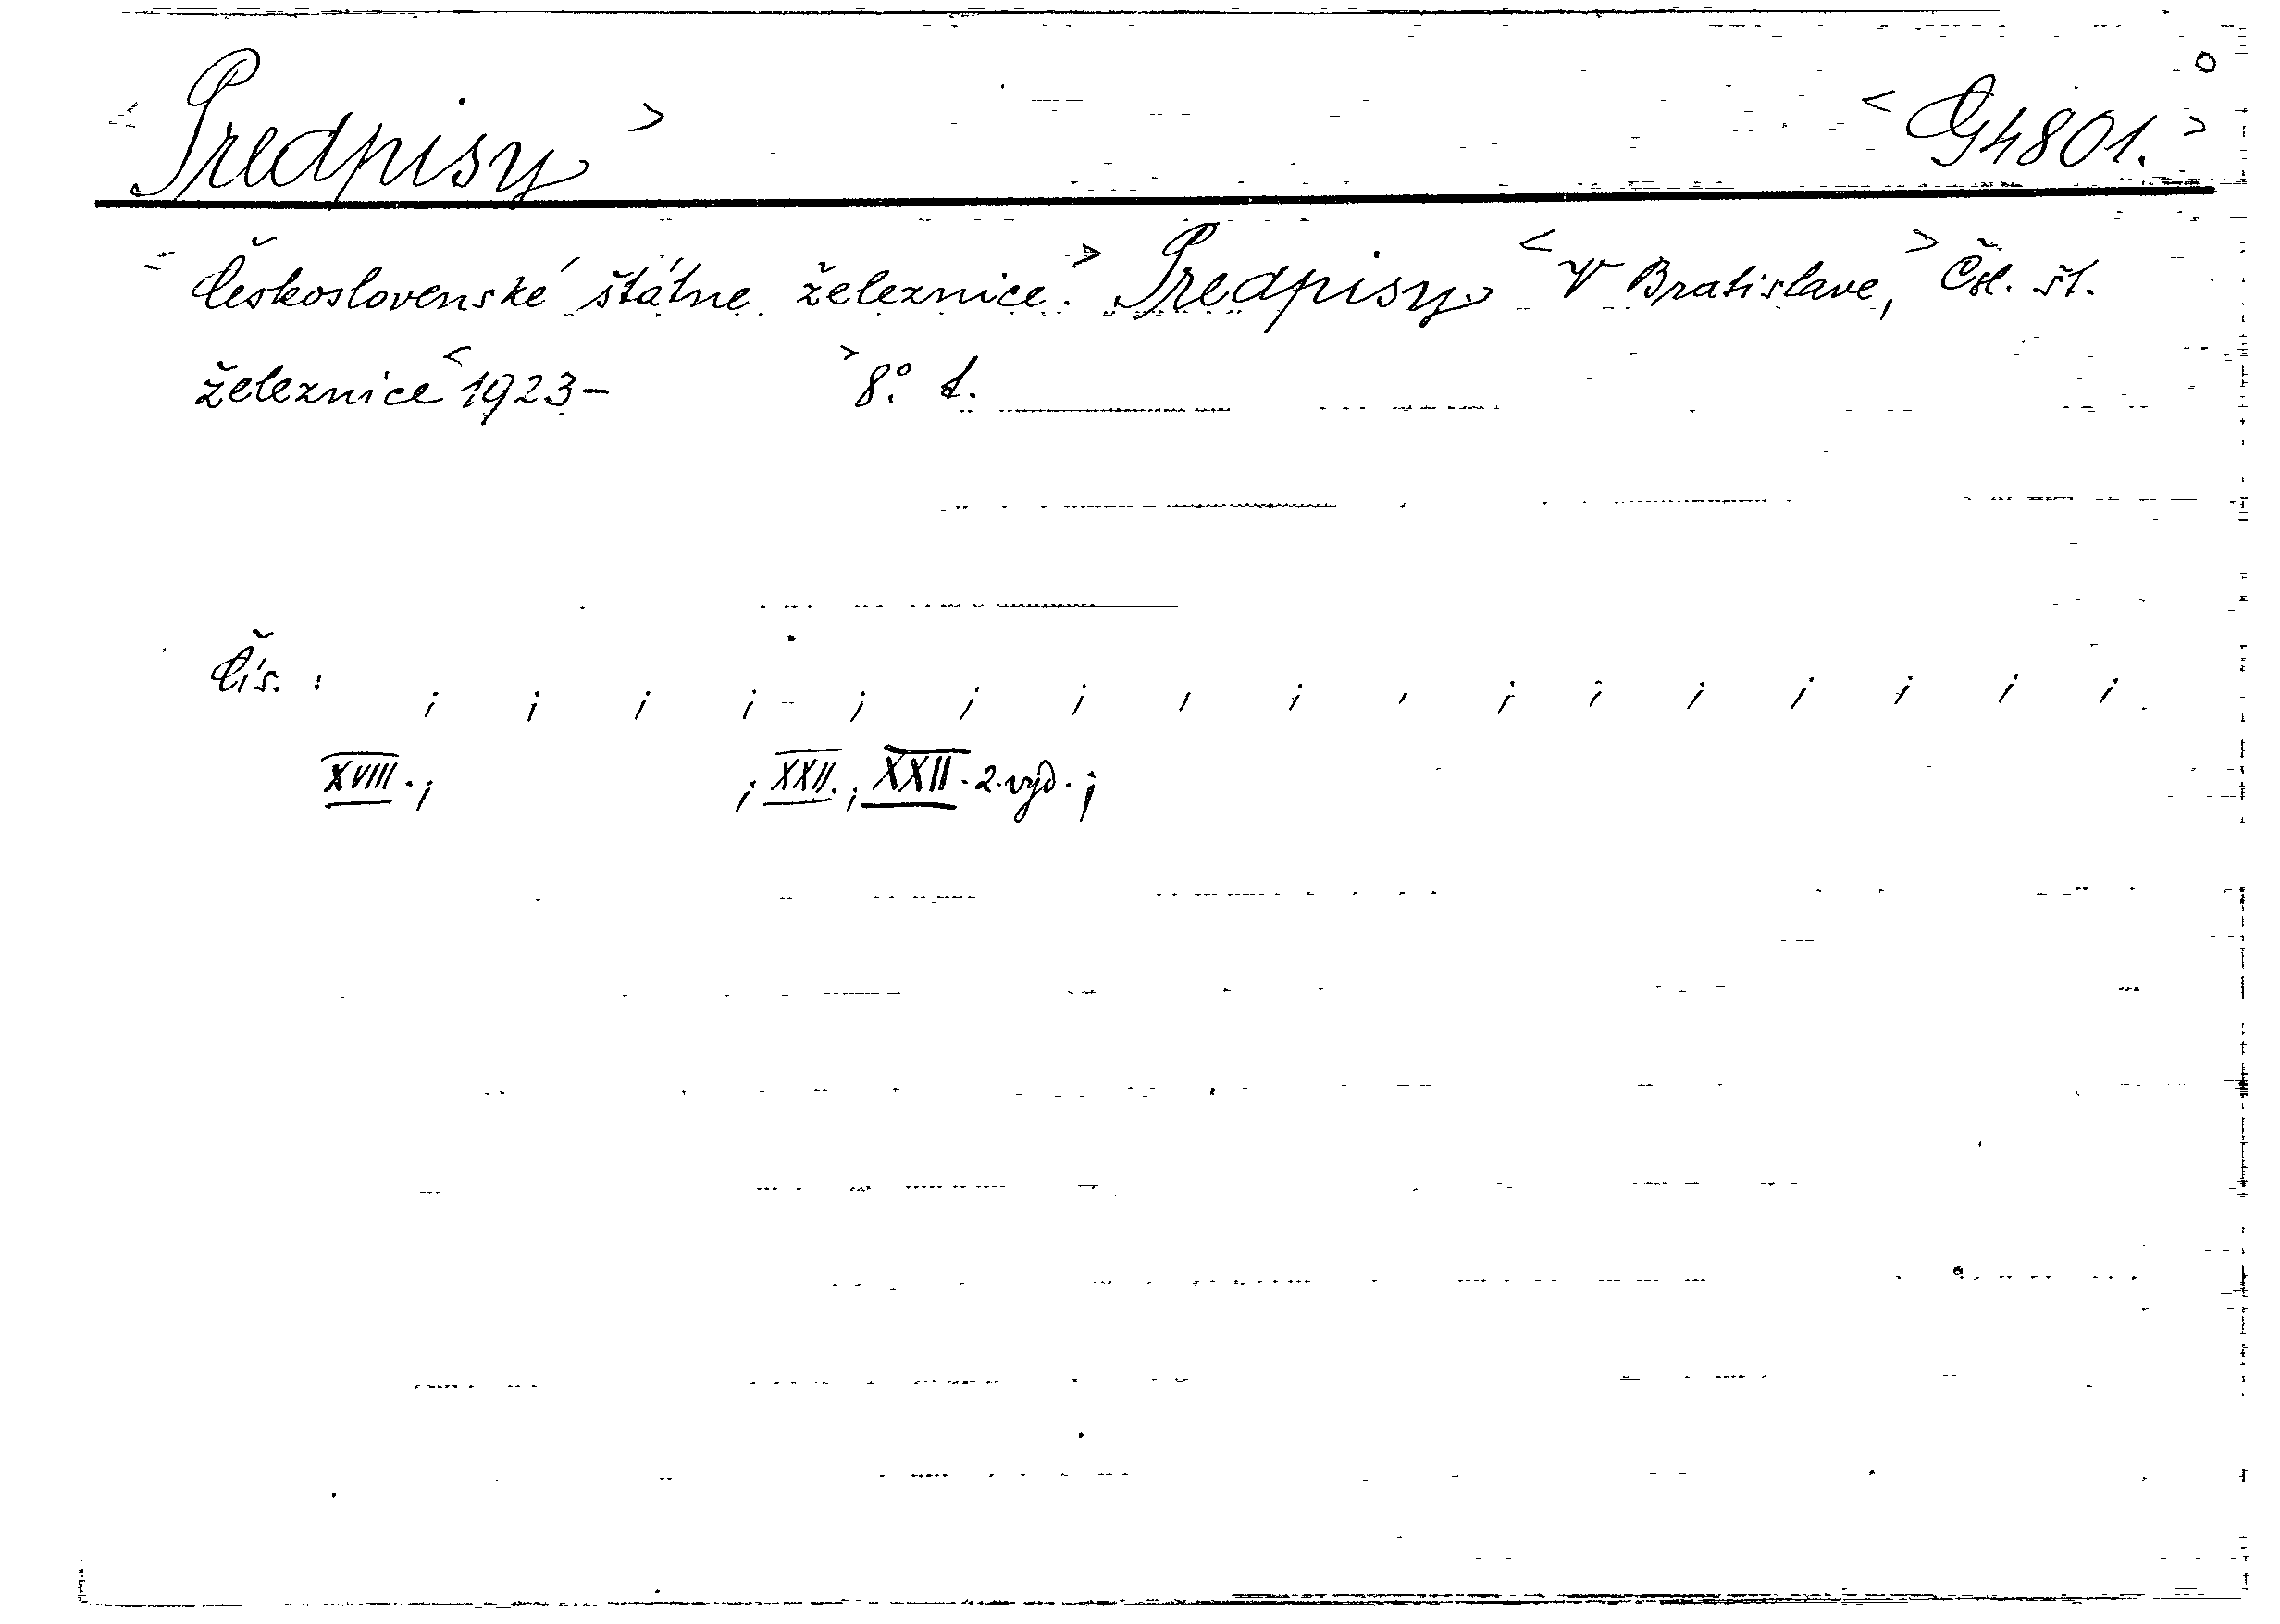 < Predpisy > < G4801. >
< Československé štátne železnice. > Predpisy < V Bratislave, > Čsl. št.
železnice < 1923- > 8° t.
Čís. : ; ; ; ; ; ; ; , ; , ; ; ; ; ; ; ;
XVIII. ; ; XXII. ; XXII. 2. vyd. ;